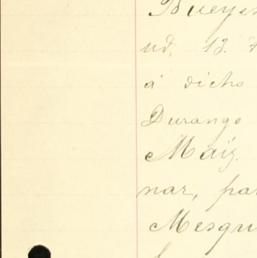 Bueyes
ud. 13.
á dicho
Durango
Maíz.
nar, par
Mesqui